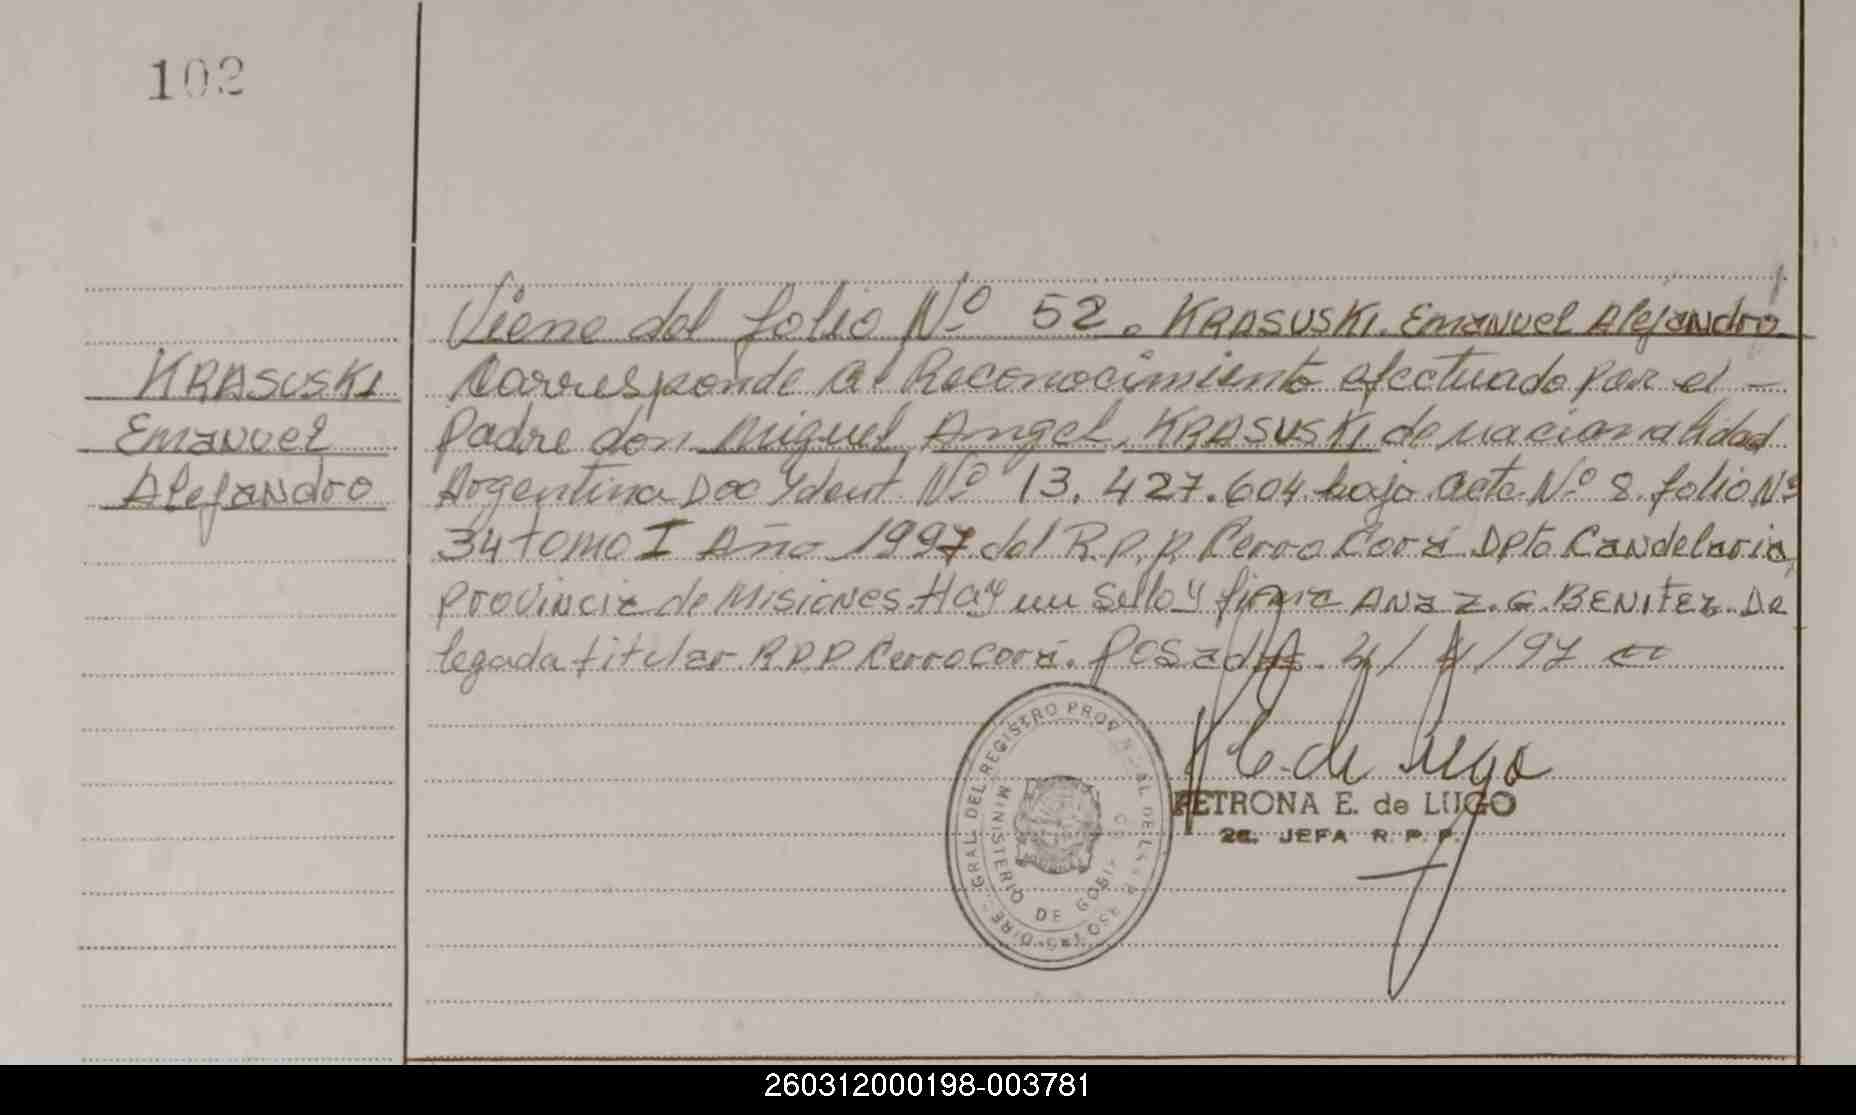 102
Viene del folio Nº 52. KRASUSKI. Emanuel Alejandro
KRASUSKI
Emanuel
Alejandro
Corresponde al Reconocimiento efectuado por el -
Padre don Miguel Angel, KRASUSKI de nacionalidad
Argentina Doc Ydent Nº 13.427.604 bajo acta Nº 8 folio Nº
34 tomo I Año 1997 del R.P.P. Cerro Corá Dpto Candelaria,
Provincia de Misiones. Hay un sello y firma ANA Z. G. BENITEZ. De
legada titular R.P.P Cerro Corá. Posadas. /97
P E. de Lugo
PETRONA E. de LUGO
2a. JEFA R. P. P.
DIREC. GRAL. DEL REGISTRO PROVINCIAL DE LAS PERSONAS
MINISTERIO DE GOBIERNO
260312000198-003781